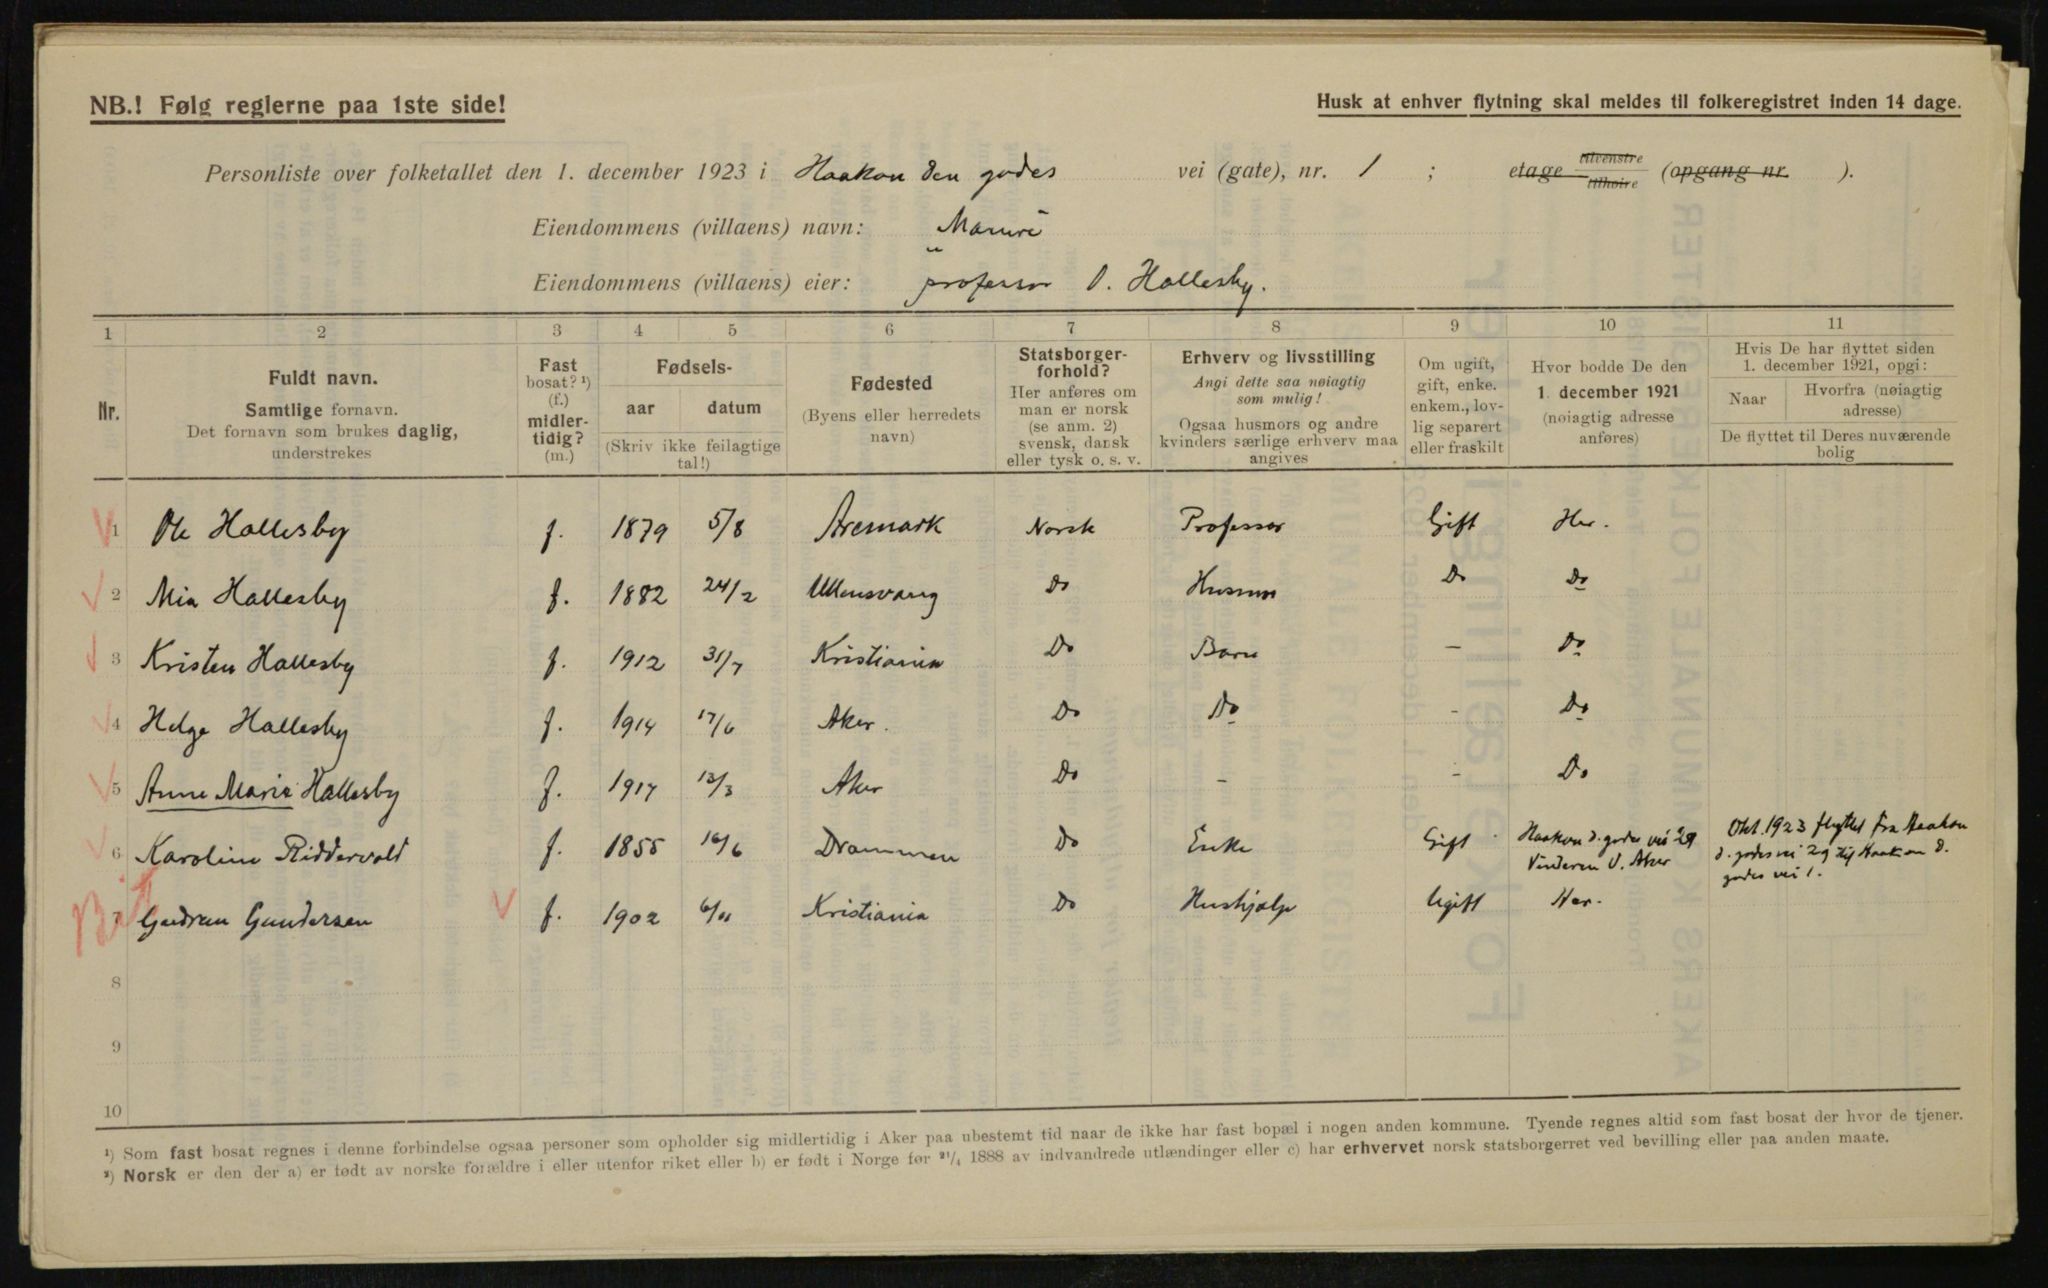 NB.! Følg reglerne paa 1ste side!
Husk at enhver flytning skal meldes til folkeregistret inden 14 dage.
Personliste over folketallet den 1. december 1923 i Haakon den godes vei (gate), nr. 1 ; etage tilvenstre tilhøire (opgang nr. ).
Eiendommens (villaens) navn:
Eiendommens (villaens) eier: professor O. Hallesby.
1 2 3 4 5 6 7 8 9 10 11
Nr.
Fuldt navn.
Samtlige fornavn.
Det fornavn som brukes daglig,
understrekes
Fast
bosat? ¹)
(f.)
midler-
tidig?
(m.)
Fødsels-
aar datum
(Skriv ikke feilagtige
tal!)
Fødested
(Byens eller herredets
navn)
Statsborger-
forhold?
Her anføres om
man er norsk
(se anm. 2)
svensk, dansk
eller tysk o. s. v.
Erhverv og livsstilling
Angi dette saa nøiagtig
som mulig!
Ogsaa husmors og andre
kvinders særlige erhverv maa
angives
Om ugift,
gift, enke.
enkem., lov-
lig separert
eller fraskilt
Hvor bodde De den
1. december 1921
(nøiagtig adresse
anføres)
Hvis De har flyttet siden
1. december 1921, opgi:
Naar
Hvorfra (nøiagtig
adresse)
De flyttet til Deres nuværende
bolig
1 Ole Hallesby f. 1879 5/8 Aremark Norsk Professor Gift Her.
2 Mia Hallesby f. 1882 24/2 Ullensvang Do Husmor Do Do
3 Kristen Hallesby f. 1912 31/7 Kristiania Do Barn - Do
4 Helge Hallesby f. 1914 17/6 Aker. Do Do - Do
5 Anne Marie Hallesby f. 1917 13/3 Aker Do - - Do
6 Karoline Riddervold f. 1855 16/6 Drammen Do Enke Gift Haakon d. godes vei 29 Vinderen V. Aker Okt. 1923 flyttet fra Haakon d. godes vei 29 til Haakon d. godes vei 1.
7 Gudrun Gundersen f. 1902 6/11 Kristiania Do Hushjælp Ugift Her.
8
9
10
¹) Som fast bosat regnes i denne forbindelse ogsaa personer som opholder sig midlertidig i Aker paa ubestemt tid naar de ikke har fast bopæl i nogen anden kommune. Tyende regnes altid som fast bosat der hvor de tjener.
²) Norsk er den der a) er født av norske forældre i eller utenfor riket eller b) er født i Norge før ²¹/₄ 1888 av indvandrede utlændinger eller c) har erhvervet norsk statsborgerret ved bevilling eller paa anden maate.